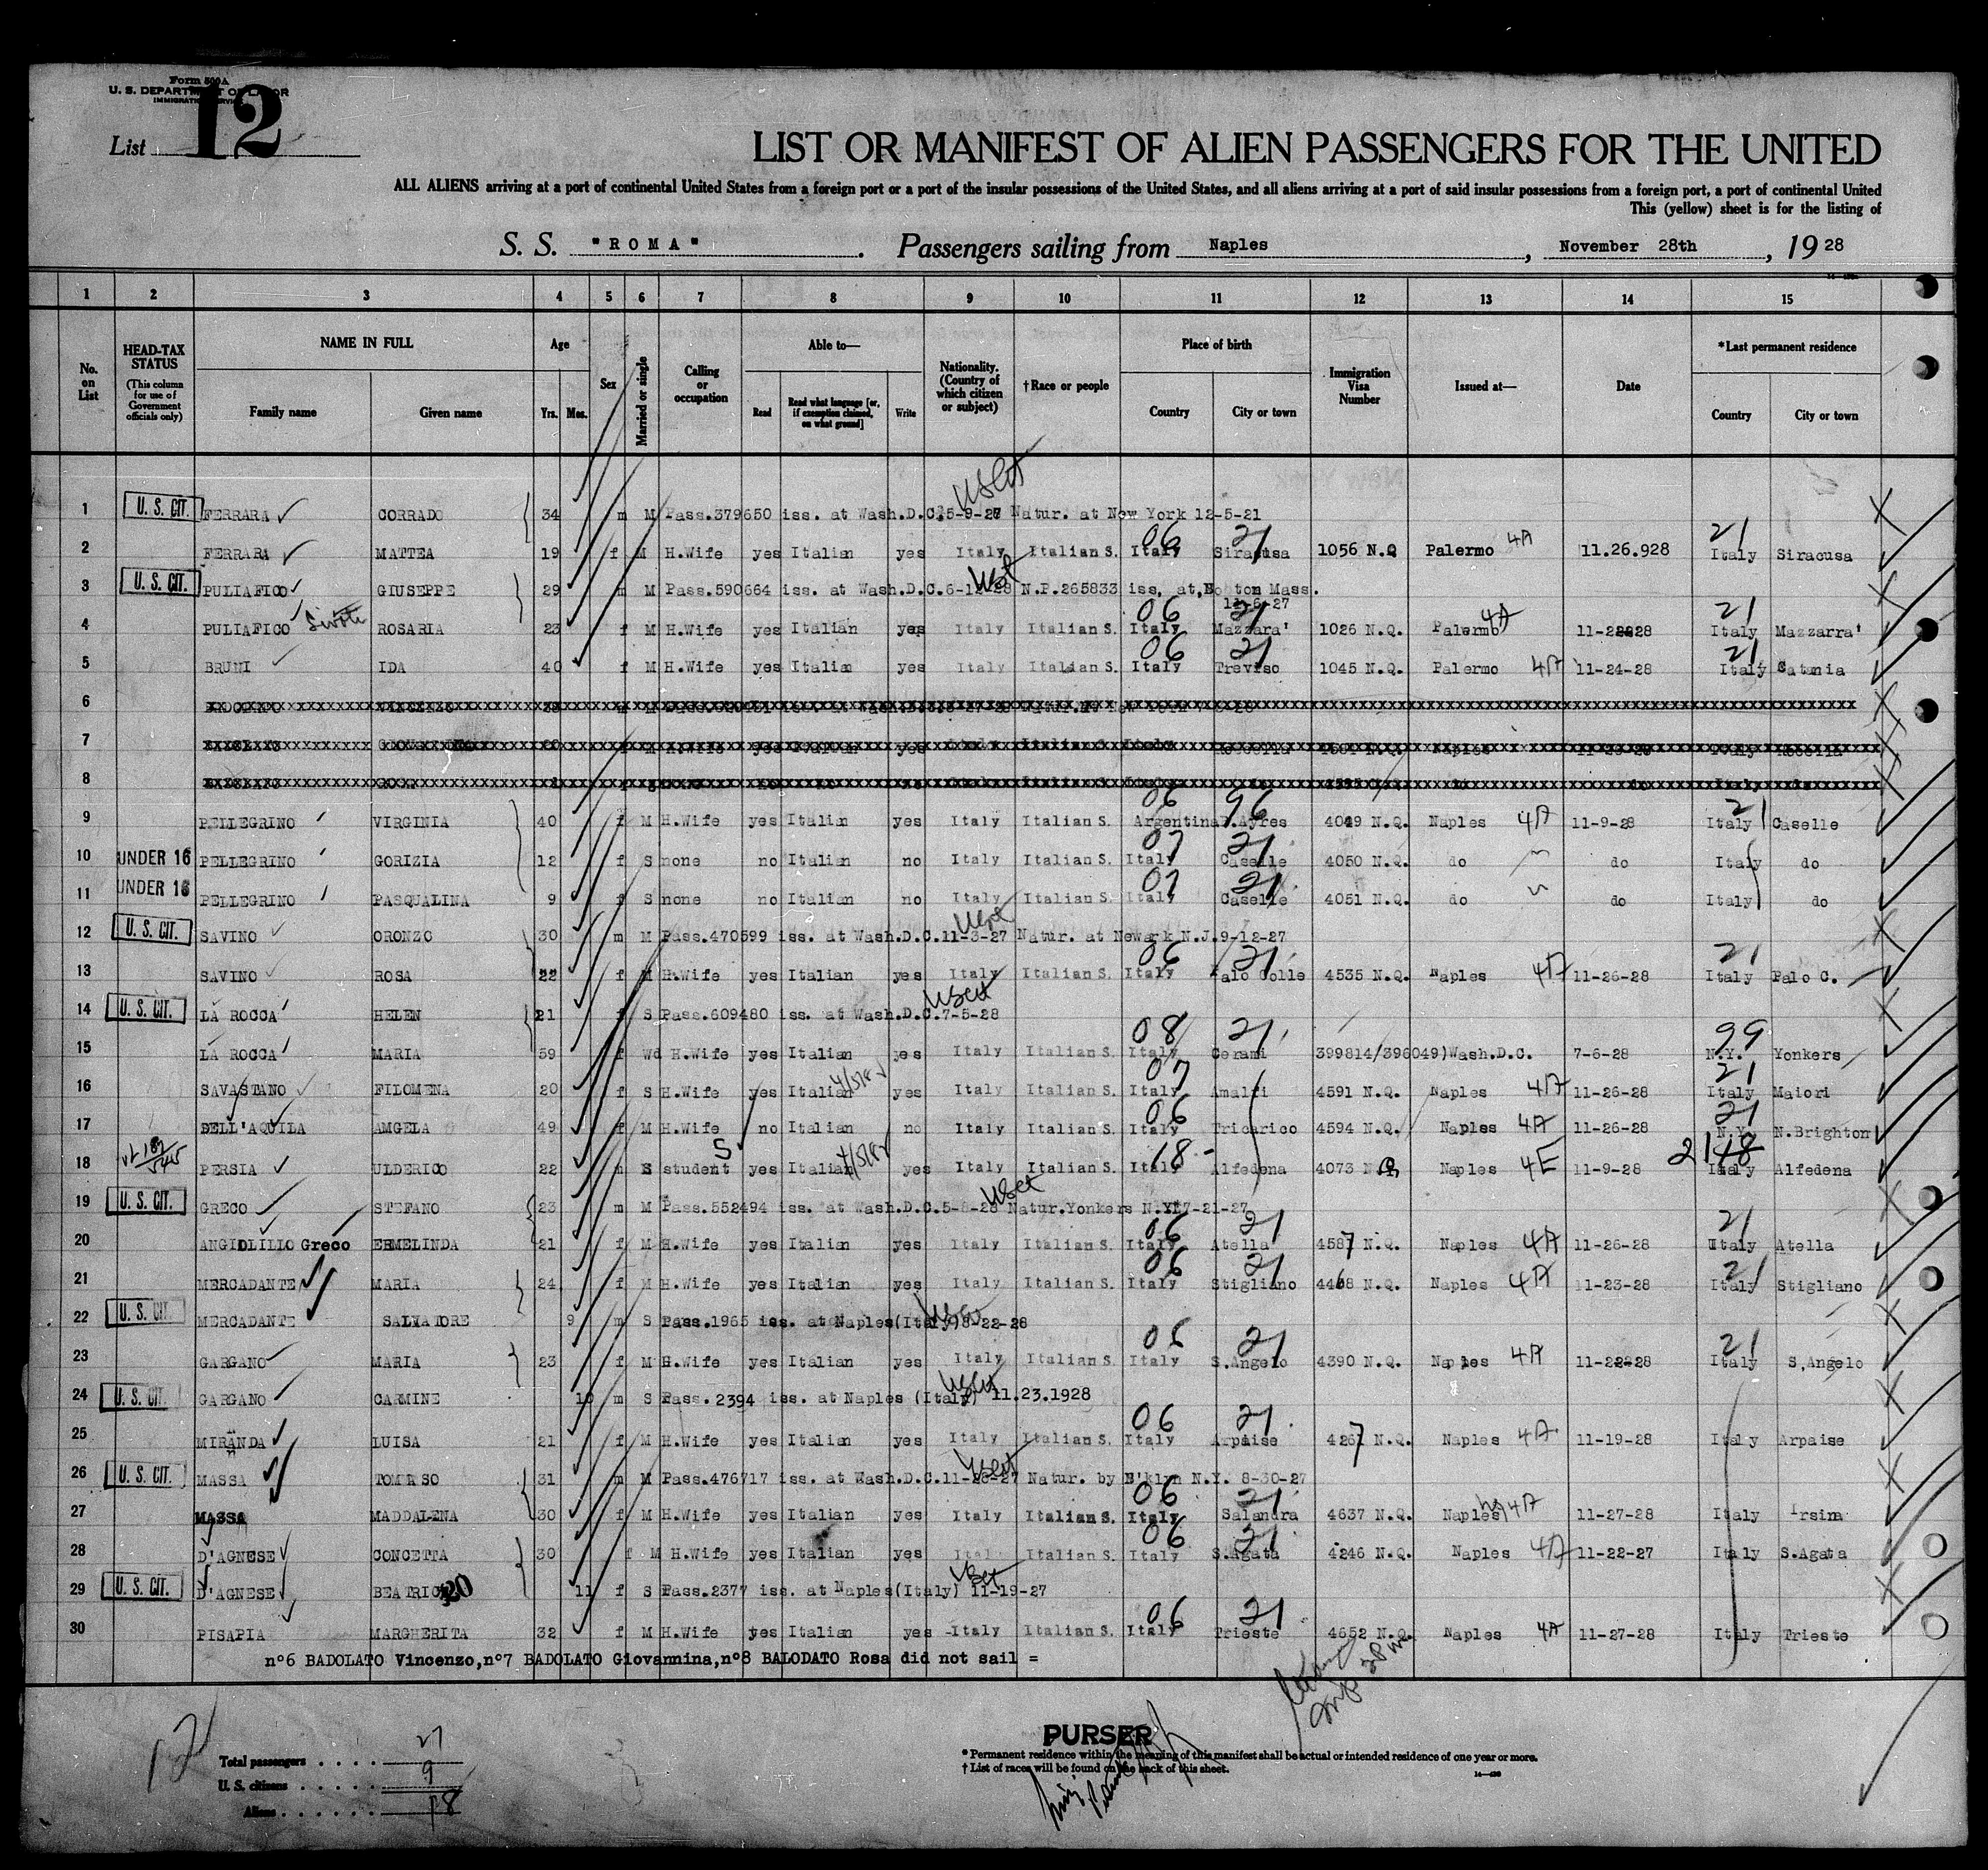 Form 500A
U. S. DEPARTMENT OF LABOR
IMMIGRATION SERVICE
List 12
LIST OR MANIFEST OF ALIEN PASSENGERS FOR THE UNITED
ALL ALIENS arriving at a port of continental United States from a foreign port or a port of the insular possessions of the United States, and all aliens arriving at a port of said insular possessions from a foreign port, a port of continental United
This (yellow) sheet is for the listing of
S. S. "ROMA". Passengers sailing from Naples, November 28th, 1928
1 2 3 4 5 6 7 8 9 10 11 12 13 14 15
No. on List
HEAD-TAX STATUS (This column for use of Government officials only)
NAME IN FULL
Family name Given name
Age
Yrs. Mos.
Sex
Married or single
Calling or occupation
Able to—
Read Read what language [or, if exemption claimed, on what ground] Write
Nationality. (Country of which citizen or subject)
†Race or people
Place of birth
Country City or town
Immigration Visa Number
Issued at—
Date
*Last permanent residence
Country City or town
1 U. S. CIT. FERRARA CORRADO 34 m M Pass.379650 iss. at Wash.D.C. Natur. at New York 12-5-21
2 FERRARA MATTEA 19 f M H.Wife yes Italian yes Italy Italian S. Italy 06 Siracusa 21 1056 N.Q Palermo 4A 11.26.928 Italy 21 Siracusa
3 U. S. CIT. PULIAFICO GIUSEPPE 29 m M Pass.590664 iss. at Wash.D.C. N.P.265833 iss. at Boston Mass.
4 PULIAFICO ROSARIA 23 f M H.Wife yes Italian yes Italy Italian S. Italy 06 Mazzara' 21 1026 N.Q. Palermo 4A Italy 21 Mazzarra'
5 BRUNI IDA 40 f M H.Wife yes Italian yes Italy Italian S. Italy 06 Treviso 21 1045 N.Q. Palermo 4A 11-24-28 Italy 21 Catania
6
7
8
9 PELLEGRINO VIRGINIA 40 f M H.Wife yes Italian yes Italy Italian S. Argentina 06 B.Ayres 96 4049 N.Q. Naples 4A 11-9-28 Italy 21 Caselle
10 UNDER 16 PELLEGRINO GORIZIA 12 f S none no Italian no Italy Italian S. Italy 07 Caselle 21 4050 N.Q. do do Italy do
11 UNDER 16 PELLEGRINO PASQUALINA 9 f S none no Italian no Italy Italian S. Italy 07 Caselle 21 4051 N.Q. do do Italy do
12 U. S. CIT. SAVINO ORONZO 30 m M Pass.470599 iss. at Wash.D.C.11-3-27 Natur. at Newark N.J.9-12-27
13 SAVINO ROSA 22 f M H.Wife yes Italian yes Italy Italian S. Italy 06 Palo Colle 21 4535 N.Q. Naples 4A 11-26-28 Italy 21 Palo C.
14 U. S. CIT. LA ROCCA HELEN 21 f S Pass.609480 iss. at Wash.D.C.7-5-28
15 LA ROCCA MARIA 59 f Wd H.Wife yes Italian yes Italy Italian S. Italy 08 Cerami 21 399814/396049)Wash.D.C. 7-6-28 N.Y. 99 Yonkers
16 SAVASTANO FILOMENA 20 f S H.Wife yes Italian yes Italy Italian S. Italy 07 Amalfi 4591 N.Q. Naples 4A 11-26-28 Italy 21 Maiori
17 DELL'AQUILA ANGELA 49 f M H.Wife no Italian no Italy Italian S. Italy 06 Tricarico 4594 N.Q. Naples 4A 11-26-28 N.Y. 21 N.Brighton
18 PERSIA ULDERICO 22 m S student yes Italian yes Italy Italian S. Italy 18 Alfedena 4073 N.Q. Naples 4E 11-9-28 Italy Alfedena
19 U. S. CIT. GRECO STEFANO 23 m M Pass.552494 iss. at Wash.D.C. Natur.Yonkers N.Y.
20 ANGIOLILLO Greco ERMELINDA 21 f M H.Wife yes Italian yes Italy Italian S. Italy 06 Atella 21 4587 N.Q. Naples 4A 11-26-28 Italy 21 Atella
21 MERCADANTE MARIA 24 f M H.Wife yes Italian yes Italy Italian S. Italy 06 Stigliano 21 4468 N.Q. Naples 4A 11-23-28 Italy 21 Stigliano
22 U. S. CIT. MERCADANTE SALVATORE 9 m S Pass.1965 iss. at Naples(Italy)8-22-28
23 GARGANO MARIA 23 f M H.Wife yes Italian yes Italy Italian S. Italy 06 S.Angelo 21 4390 N.Q. Naples 4A 11-22-28 Italy 21 S,Angelo
24 U. S. CIT. GARGANO CARMINE 10 m S Pass.2394 iss. at Naples (Italy) 11.23.1928
25 MIRANDA LUISA 21 f M H.Wife yes Italian yes Italy Italian S. Italy 06 Arpaise 21 4267 N.Q. Naples 4A 11-19-28 Italy Arpaise
26 U. S. CIT. MASSA TOMASO 31 m M Pass.476717 iss. at Wash.D.C. Natur. by B'klyn N.Y. 8-30-27
27 MASSA MADDALENA 30 f M H.Wife yes Italian yes Italy Italian S. Italy 06 Salandra 21 4637 N.Q. Naples 4A 11-27-28 Italy Irsina
28 D'AGNESE CONCETTA 30 f M H.Wife yes Italian yes Italian S. Italy 06 S.Agata 21 4246 N.Q. Naples 4A 11-22-27 Italy S.Agata
29 U. S. CIT. D'AGNESE 11 f S Pass.2377 iss. at Naples(Italy) 11-19-27
30 PISAPIA MARGHERITA 32 f M H.Wife yes Italian yes Italy Italian S. Italy 06 Trieste 21 4652 N.Q. Naples 4A 11-27-28 Italy Trieste
n°6 BADOLATO Vincenzo,n°7 BADOLATO Giovannina,n°8 BALODATO Rosa did not sail =
12
Total passengers . . . . 27
U. S. citizens . . . . . 9
Aliens . . . . . . 18
PURSER
* Permanent residence within the meaning of this manifest shall be actual or intended residence of one year or more.
† List of races will be found on the back of this sheet.